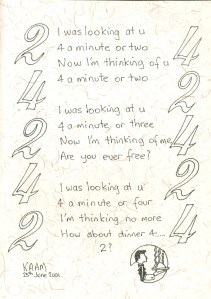 I was looking at u
4 a minute or two
Now I'm thinking of u
4 a minute or two
I was looking at u
4 a minute or three
Now I'm thinking of me
Are you ever free?
I was looking at u
4 a minute or four
I'm thinking no more
How about dinner 4....
2?
2
4
2
4
2
4
2
4
2
4
2
KAAM
25th June 2001